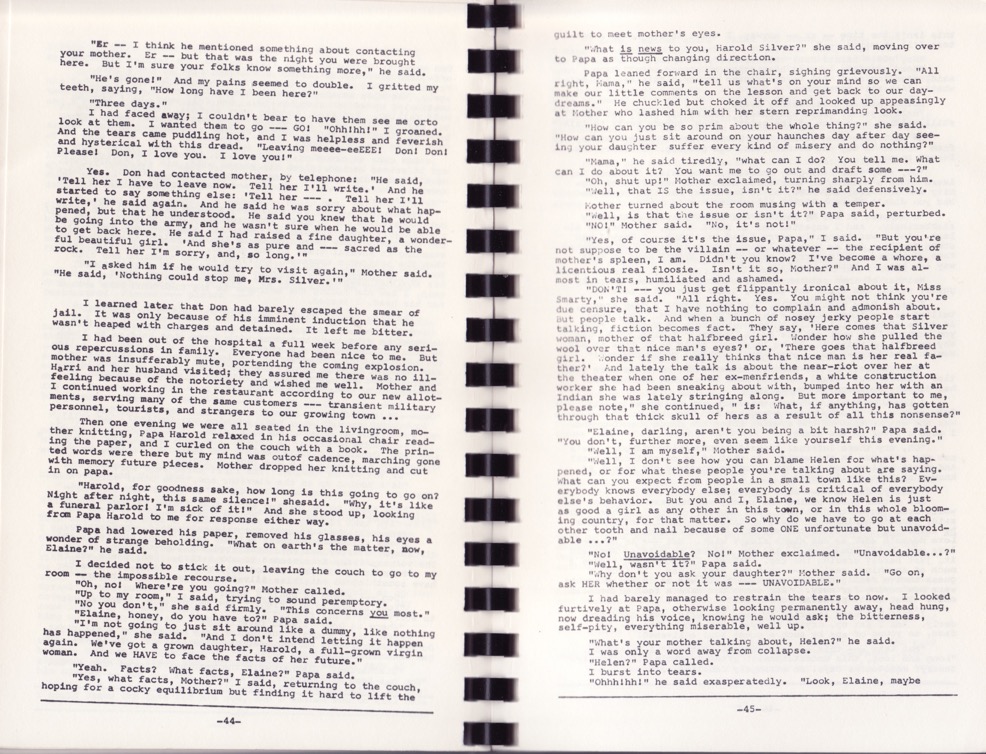 "Er -- I think he mentioned something about contacting
your mother. Er -- but that was the night you were brought
here. But I'm sure your folks know something more," he said.
"He's gone!" And my pains seemed to double. I gritted my
teeth, saying, "How long have I been here?"
"Three days."
I had faced away; I couldn't bear to have them see me orto
look at them. I wanted them to go --- GO! "Ohh!hh!" I groaned.
And the tears came puddling hot, and I was helpless and feverish
and hysterical with this dread. "Leaving meeee-eeEEE! Don! Don!
Please! Don, I love you. I love you!"
Yes. Don had contacted mother, by telephone: "He said,
'Tell her I have to leave now. Tell her I'll write.' And he
started to say something else: 'Tell her --- . Tell her I'll
write,' he said again. And he said he was sorry about what hap-
pened, but that he understood. He said you knew that he would
be going into the army, and he wasn't sure when he would be able
to get back here. He said I had raised a fine daughter, a wonder-
ful beautiful girl. 'And she's as pure and --- sacred as the
rock. Tell her I'm sorry, and, so long.'"
"I asked him if he would try to visit again," Mother said.
"He said, 'Nothing could stop me, Mrs. Silver.'"
I learned later that Don had barely escaped the smear of
jail. It was only because of his imminent induction that he
wasn't heaped with charges and detained. It left me bitter.
I had been out of the hospital a full week before any seri-
ous repercussions in family. Everyone had been nice to me. But
mother was insufferably mute, portending the coming explosion.
Harri and her husband visited; they assured me there was no ill-
feeling because of the notoriety and wished me well. Mother and
I continued working in the restaurant according to our new allot-
ments, serving many of the same customers --- transient military
personnel, tourists, and strangers to our growing town ...
Then one evening we were all seated in the livingroom, mo-
ther knitting, Papa Harold relaxed in his occasional chair read-
ing the paper, and I curled on the couch with a book. The prin-
ted words were there but my mind was outof cadence, marching gone
with memory future pieces. Mother dropped her knitting and cut
in on papa.
"Harold, for goodness sake, how long is this going to go on?
Night after night, this same silence!" shesaid. "Why, it's like
a funeral parlor! I'm sick of it!" And she stood up, looking
from Papa Harold to me for response either way.
Papa had lowered his paper, removed his glasses, his eyes a
wonder of strange beholding. "What on earth's the matter, now,
Elaine?" he said.
I decided not to stick it out, leaving the couch to go to my
room -- the impossible recourse.
"Oh, no! Where're you going?" Mother called.
"Up to my room," I said, trying to sound peremptory.
"No you don't," she said firmly. "This concerns you most."
"Elaine, honey, do you have to?" Papa said.
"I'm not going to just sit around like a dummy, like nothing
has happened," she said. "And I don't intend letting it happen
again. We've got a grown daughter, Harold, a full-grown virgin
woman. And we HAVE to face the facts of her future."
"Yeah. Facts? What facts, Elaine?" Papa said.
"Yes, what facts, Mother?" I said, returning to the couch,
hoping for a cocky equilibrium but finding it hard to lift the
-44-
guilt to meet mother's eyes.
"What is news to you, Harold Silver?" she said, moving over
to Papa as though changing direction.
Papa leaned forward in the chair, sighing grievously. "All
right, Mama," he said, "tell us what's on your mind so we can
make our little comments on the lesson and get back to our day-
dreams." He chuckled but choked it off and looked up appeasingly
at Mother who lashed him with her stern reprimanding look.
"How can you be so prim about the whole thing?" she said.
"How can you just sit around on your haunches day after day see-
ing your daughter suffer every kind of misery and do nothing?"
"Mama," he said tiredly, "what can I do? You tell me. What
can I do about it? You want me to go out and draft some ---?"
"Oh, shut up!" Mother exclaimed, turning sharply from him.
"Well, that IS the issue, isn't it?" he said defensively.
Mother turned about the room musing with a temper.
"Well, is that the issue or isn't it?" Papa said, perturbed.
"NO!" Mother said. "No, it's not!"
"Yes, of course it's the issue, Papa," I said. "But you're
not suppose to be the villain -- or whatever -- the recipient of
mother's spleen, I am. Didn't you know? I've become a whore, a
licentious real floosie. Isn't it so, Mother?" And I was al-
most in tears, humiliated and ashamed.
"DON'T! --- you just get flippantly ironical about it, Miss
Smarty," she said. "All right. Yes. You might not think you're
due censure, that I have nothing to complain and admonish about.
But people talk. And when a bunch of nosey jerky people start
talking, fiction becomes fact. They say, 'Here comes that Silver
woman, mother of that halfbreed girl. Wonder how she pulled the
wool over that nice man's eyes?' or, 'There goes that halfbreed
girl. Wonder if she really thinks that nice man is her real fa-
ther?' And lately the talk is about the near-riot over her at
the theater when one of her ex-menfriends, a white construction
worker she had been sneaking about with, bumped into her with an
Indian she was lately stringing along. But more important to me,
please note," she continued, " is: What, if anything, has gotten
through that thick skull of hers as a result of all this nonsense?"
"Elaine, darling, aren't you being a bit harsh?" Papa said.
"You don't, further more, even seem like yourself this evening."
"Well, I am myself," Mother said.
"Well, I don't see how you can blame Helen for what's hap-
pened, or for what these people you're talking about are saying.
What can you expect from people in a small town like this? Ev-
erybody knows everybody else; everybody is critical of everybody
else's behavior. But you and I, Elaine, we know Helen is just
as good a girl as any other in this town, or in this whole bloom-
ing country, for that matter. So why do we have to go at each
other tooth and nail because of some ONE unfortunate but unavoid-
able ...?"
"No! Unavoidable? No!" Mother exclaimed. "Unavoidable...?"
"Well, wasn't it?" Papa said.
"Why don't you ask your daughter?" Mother said. "Go on,
ask HER whether or not it was --- UNAVOIDABLE."
I had barely managed to restrain the tears to now. I looked
furtively at Papa, otherwise looking permanently away, head hung,
now dreading his voice, knowing he would ask; the bitterness,
self-pity, everything miserable, well up.
"What's your mother talking about, Helen?" he said.
I was only a word away from collapse.
"Helen?" Papa called.
I burst into tears.
"Ohhh!hh!" he said exasperatedly. "Look, Elaine, maybe
-45-